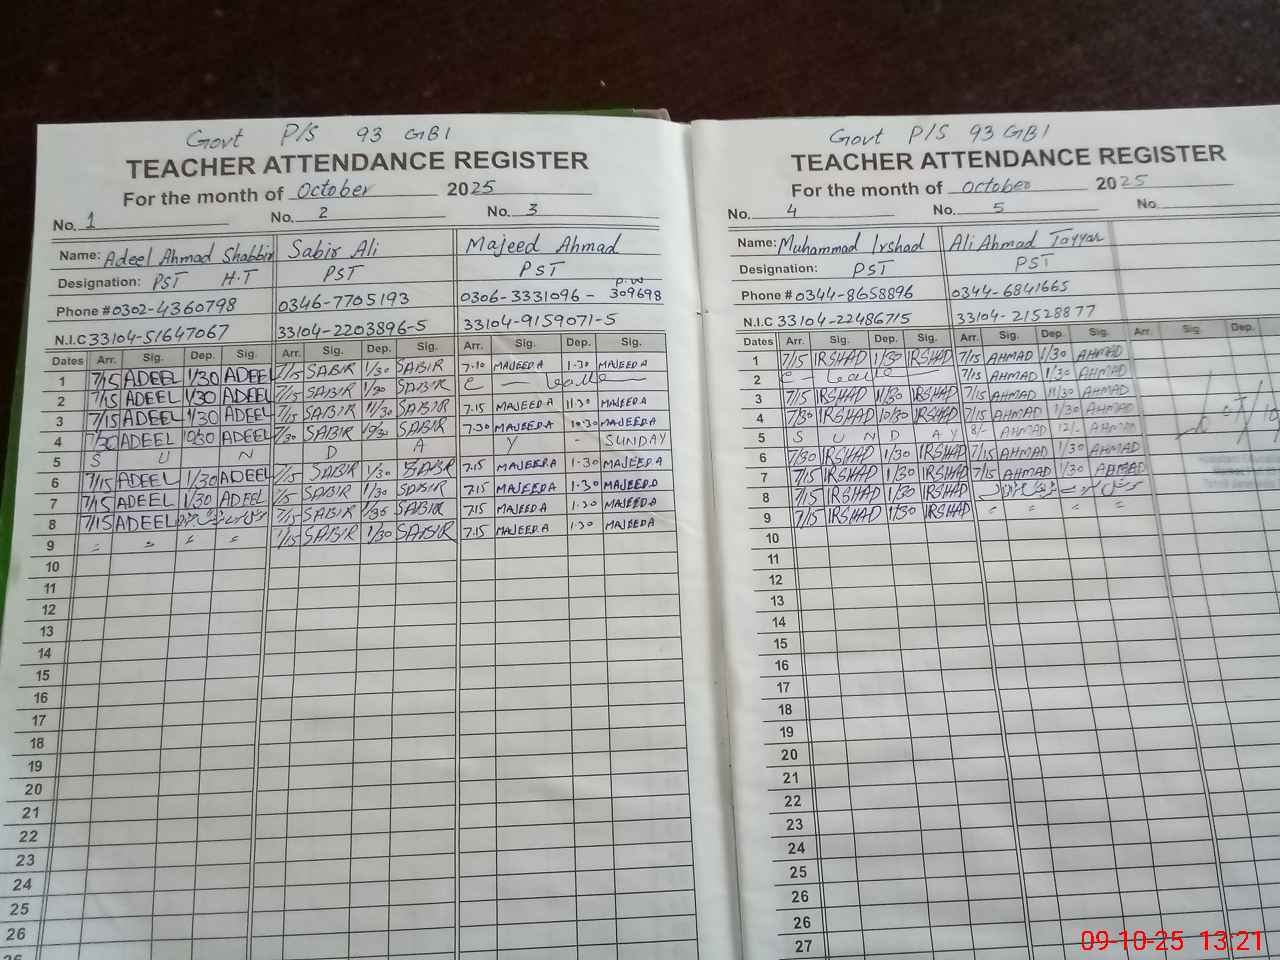 Govt P/S 93 GB1
TEACHER ATTENDANCE REGISTER
For the month of October 2025
No. 1 No. 2 No. 3
Name: Adeel Ahmad Shabbir Sabir Ali Majeed Ahmad
Designation: PST H.T PST PST
P.W
Phone # 0302-4360798 0346-7705193 0306-3331096 - 309698
N.I.C 33104-51647067 33104-2203896-5 33104-9159071-5
Dates Arr. Sig. Dep. Sig. Arr. Sig. Dep. Sig. Arr. Sig. Dep. Sig.
1 7/15 ADEEL 1/30 ADEEL 7/15 SABIR 1/30 SABIR 7-10 MAJEED A 1-30 MAJEED A
2 7/15 ADEEL 1/30 ADEEL 7/15 SABIR 1/30 SABIR
3 7/15 ADEEL 1/30 ADEEL 7/15 SABIR 11/30 SABIR 7.15 MAJEED A 11.30 MAJEED A
4 7/30 ADEEL 10/30 ADEEL 7/30 SABIR 10/30 SABIR 7-30 MAJEED A 10-30 MAJEED A
5 S U N D A Y - SUNDAY
6 7/15 ADEEL 1/30 ADEEL 7/15 SABIR 1/30 SABIR 7.15 MAJEED A 1-30 MAJEED A
7 7/15 ADEEL 1/30 ADEEL 7/15 SABIR 1/30 SABIR 7.15 MAJEED A 1-30 MAJEED A
8 7/15 ADEEL 7/15 SABIR 1/30 SABIR 7.15 MAJEED A 1.30 MAJEED A
9 " " " " 7/15 SABIR 1/30 SABIR 7.15 MAJEED A 1.30 MAJEED A
10
11
12
13
14
15
16
17
18
19
20
21
22
23
24
25
26
Govt P/S 93 GB1
TEACHER ATTENDANCE REGISTER
For the month of October 2025
No. 4 No. 5 No.
Name: Muhammad Irshad Ali Ahmad Tayyar
Designation: PST PST
Phone # 0344-8658896 0344-6841665
N.I.C 33104-22486715 33104-21528877
Dates Arr. Sig. Dep. Sig. Arr. Sig. Dep. Sig. Arr. Sig. Dep.
1 7/15 IRSHAD 1/30 IRSHAD 7/15 AHMAD 1/30 AHMAD
2 7/15 AHMAD 1/30 AHMAD
3 7/15 IRSHAD 11/30 IRSHAD 7/15 AHMAD 11/30 AHMAD
4 7/30 IRSHAD 10/30 IRSHAD 7/15 AHMAD 1/30 AHMAD
5 S U N D A Y 8/- AHMAD 12/- AHMAD
6 7/30 IRSHAD 1/30 IRSHAD 7/15 AHMAD 1/30 AHMAD
7 7/15 IRSHAD 1/30 IRSHAD 7/15 AHMAD 1/30 AHMAD
8 7/15 IRSHAD 1/30 IRSHAD
9 7/15 IRSHAD 1/30 IRSHAD " " " "
10
11
12
13
14
15
16
17
18
19
20
21
22
23
24
25
26
26
27
09-10-25 13:21